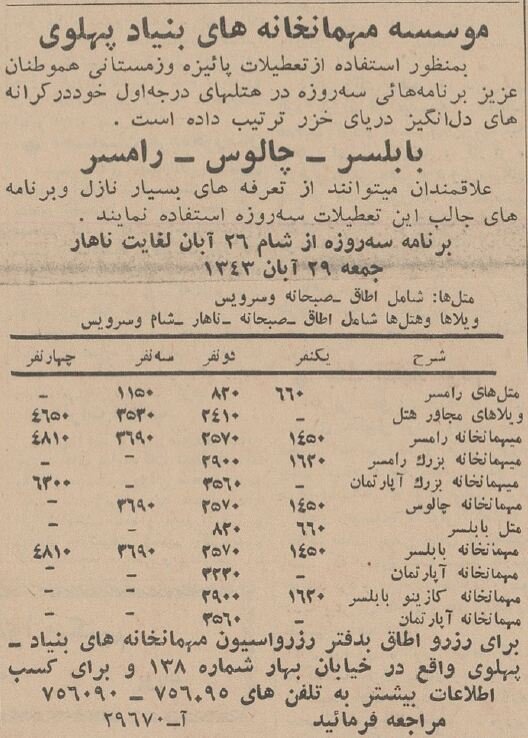 موسسه مهمانخانه های بنیاد پهلوی
بمنظور استفاده از تعطیلات پائیزه وزمستانی هموطنان
عزیز برنامه‌هائی سه‌روزه در هتلهای درجه‌اول خوددرکرانه
های دل‌انگیز دریای خزر ترتیب داده است .
بابلسر ــ چالوس ــ رامسر
علاقمندان میتوانند از تعرفه های بسیار نازل وبرنامه
های جالب این تعطیلات سه‌روزه استفاده نمایند .
برنامه سه‌روزه از شام ۲۶ آبان لغایت ناهار
جمعه ۲۹ آبان ۱۳۴۳
متل‌ها: شامل اطاق ــ صبحانه وسرویس
ویلاها وهتل‌ها شامل اطاق ــ صبحانه ــ ناهار ــ شام وسرویس
شرح یکنفر دو نفر سه نفر چهار نفر
متل‌های رامسر ۶۶۰ ۸۲۰ ۱۱۵۰ –
ویلاهای مجاور هتل – ۲۴۱۰ ۳۵۳۰ ۴۶۵۰
میهمانخانه رامسر ۱۴۵۰ ۲۵۷۰ ۳۶۹۰ ۴۸۱۰
میهمانخانه بزرگ رامسر ۱۶۲۰ ۲۹۰۰ – –
میهمانخانه بزرگ آپارتمان – ۳۵۶۰ – ۶۳۰۰
مهمانخانه چالوس ۱۴۵۰ ۲۵۷۰ ۳۶۹۰ –
متل بابلسر ۶۶۰ ۸۲۰ – –
مهمانخانه بابلسر ۱۴۵۰ ۲۵۷۰ ۳۶۹۰ ۴۸۱۰
مهمانخانه آپارتمان – ۳۲۳۰ – –
مهمانخانه کازینو بابلسر ۱۶۲۰ ۲۹۰۰ – –
مهمانخانه آپارتمان – ۳۵۶۰ – –
برای رزرو اطاق بدفتر رزرواسیون مهمانخانه های بنیاد ــ
پهلوی واقع در خیابان بهار شماره ۱۳۸ و برای کسب
اطلاعات بیشتر به تلفن های ۷۵۶۰۹۵ – ۷۵۶۰۹۰
مراجعه فرمائید آ–۲۹۶۷۰